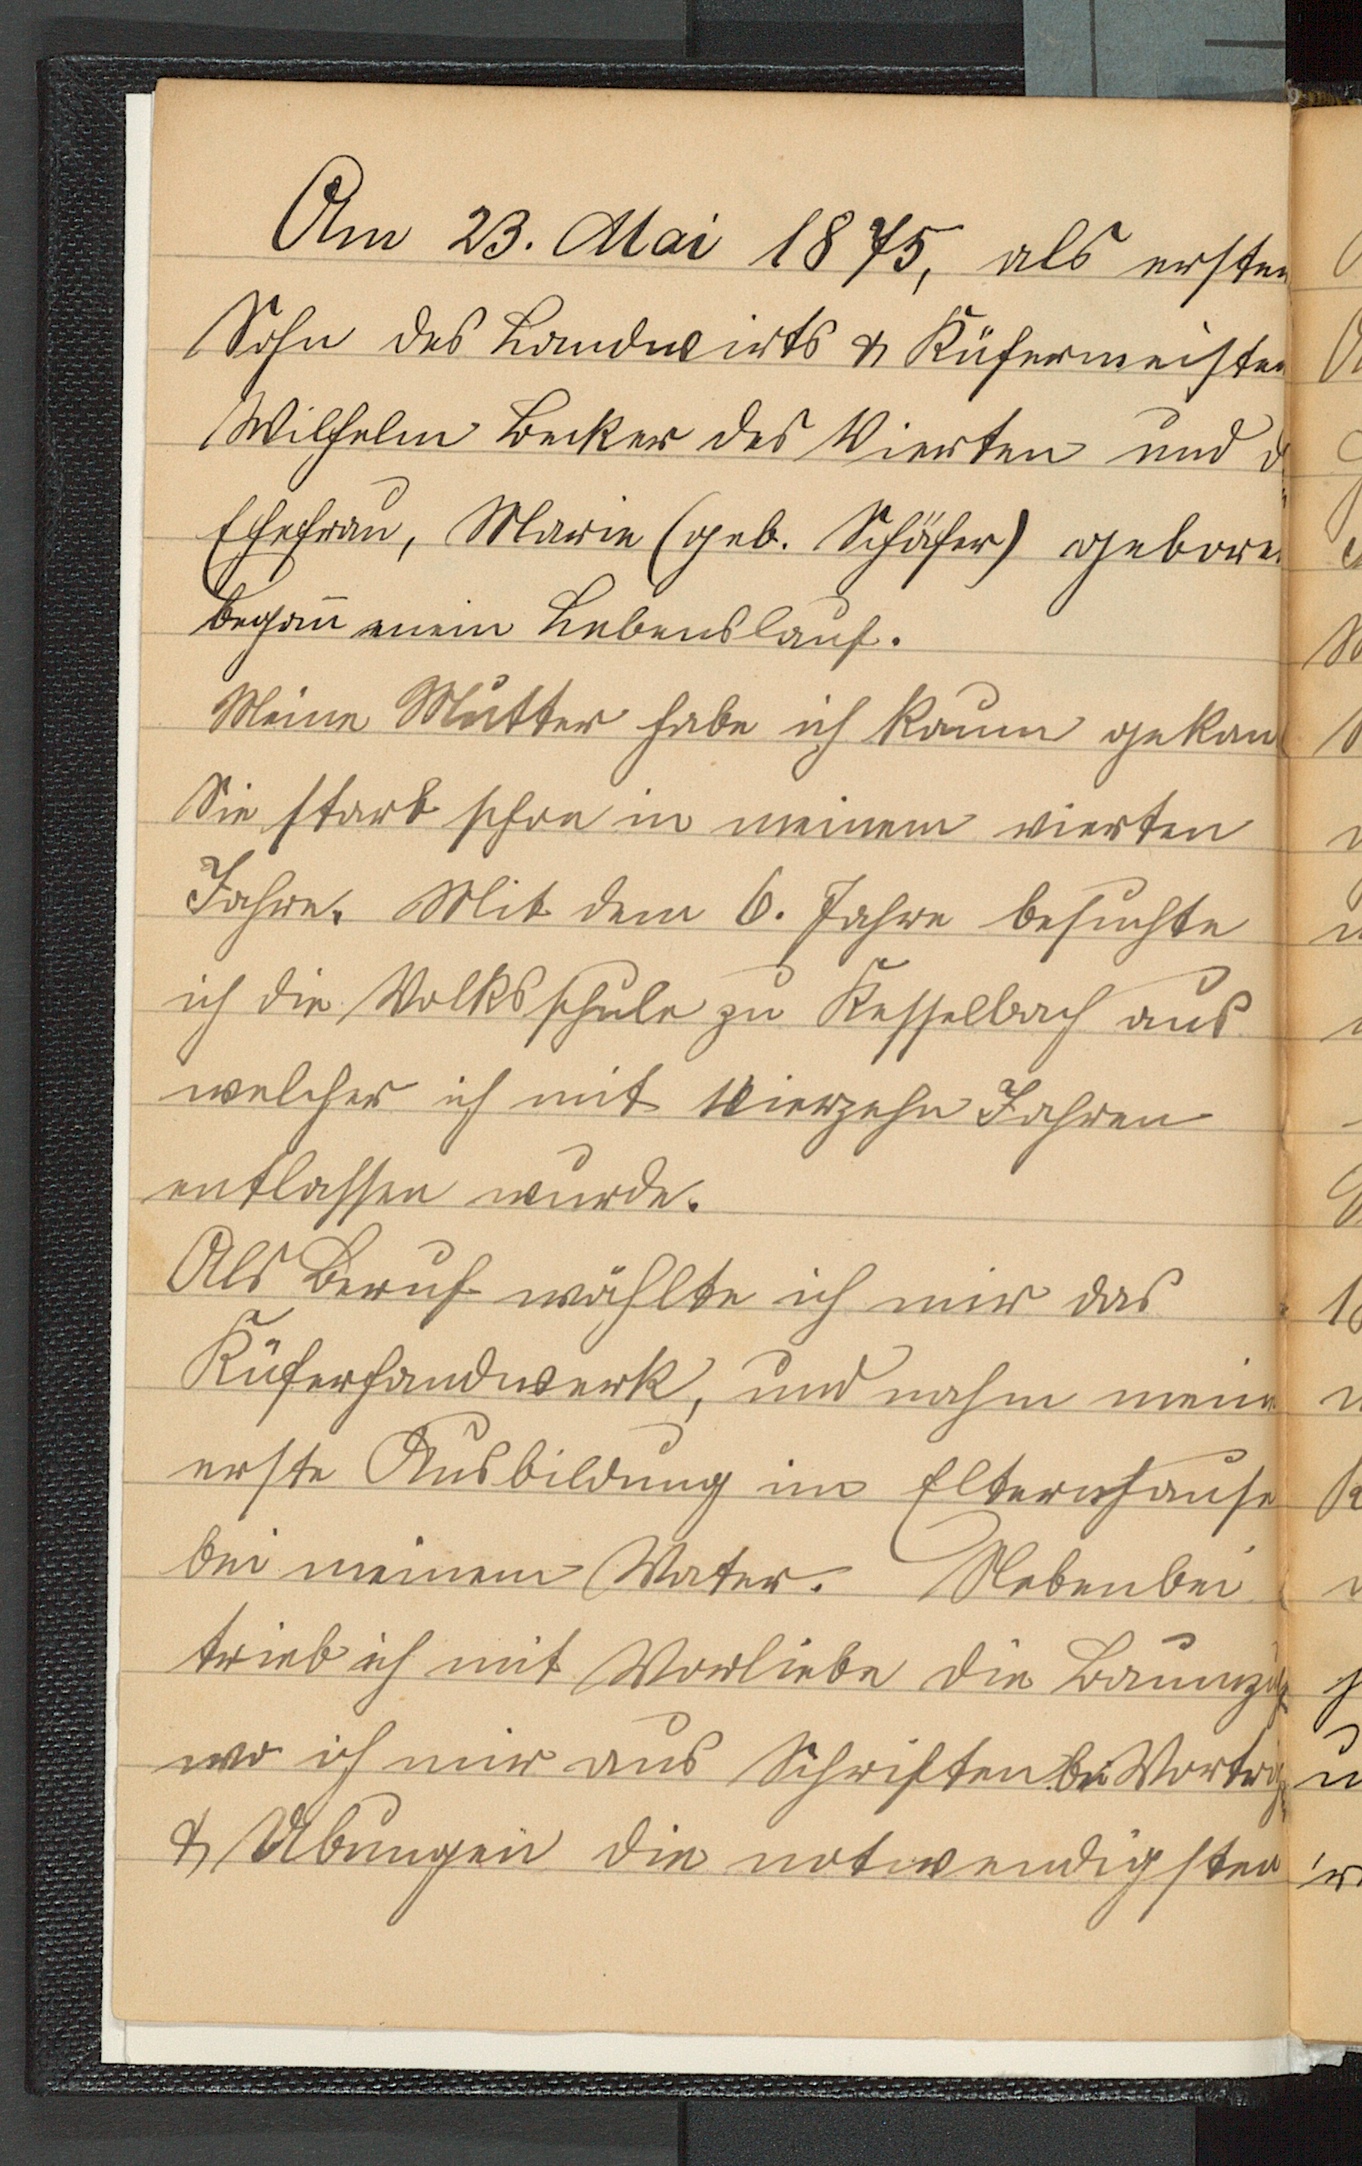 Am 23. Mai 1875, als ersten
Sohn des Landwirts & Küfermeister
Wilhelm Becker des Vierten und d
Ehefrau, Marie (geb. Schäfer) gebore
begañ mein Lebenslauf.
Meine Mutter habe ich kaum gekan
Sie starb schon in meinem vierten
Jahre. Mit dem 6. Jahre besuchte
ich die Volksschule zu Kesselbach aus
welcher ich mit vierzehn Jahren
entlassen wurde.
Als Beruf wählte ich mir das
Küferhandwerk, und nahm meine
erste Ausbildung im Elternhause
bei meinem Vater. Nebenbei
trieb ich mit Vorliebe die Baumzuch
wo ich mir aus Schriften bei Vorträg
& Übungen die notwendigsten